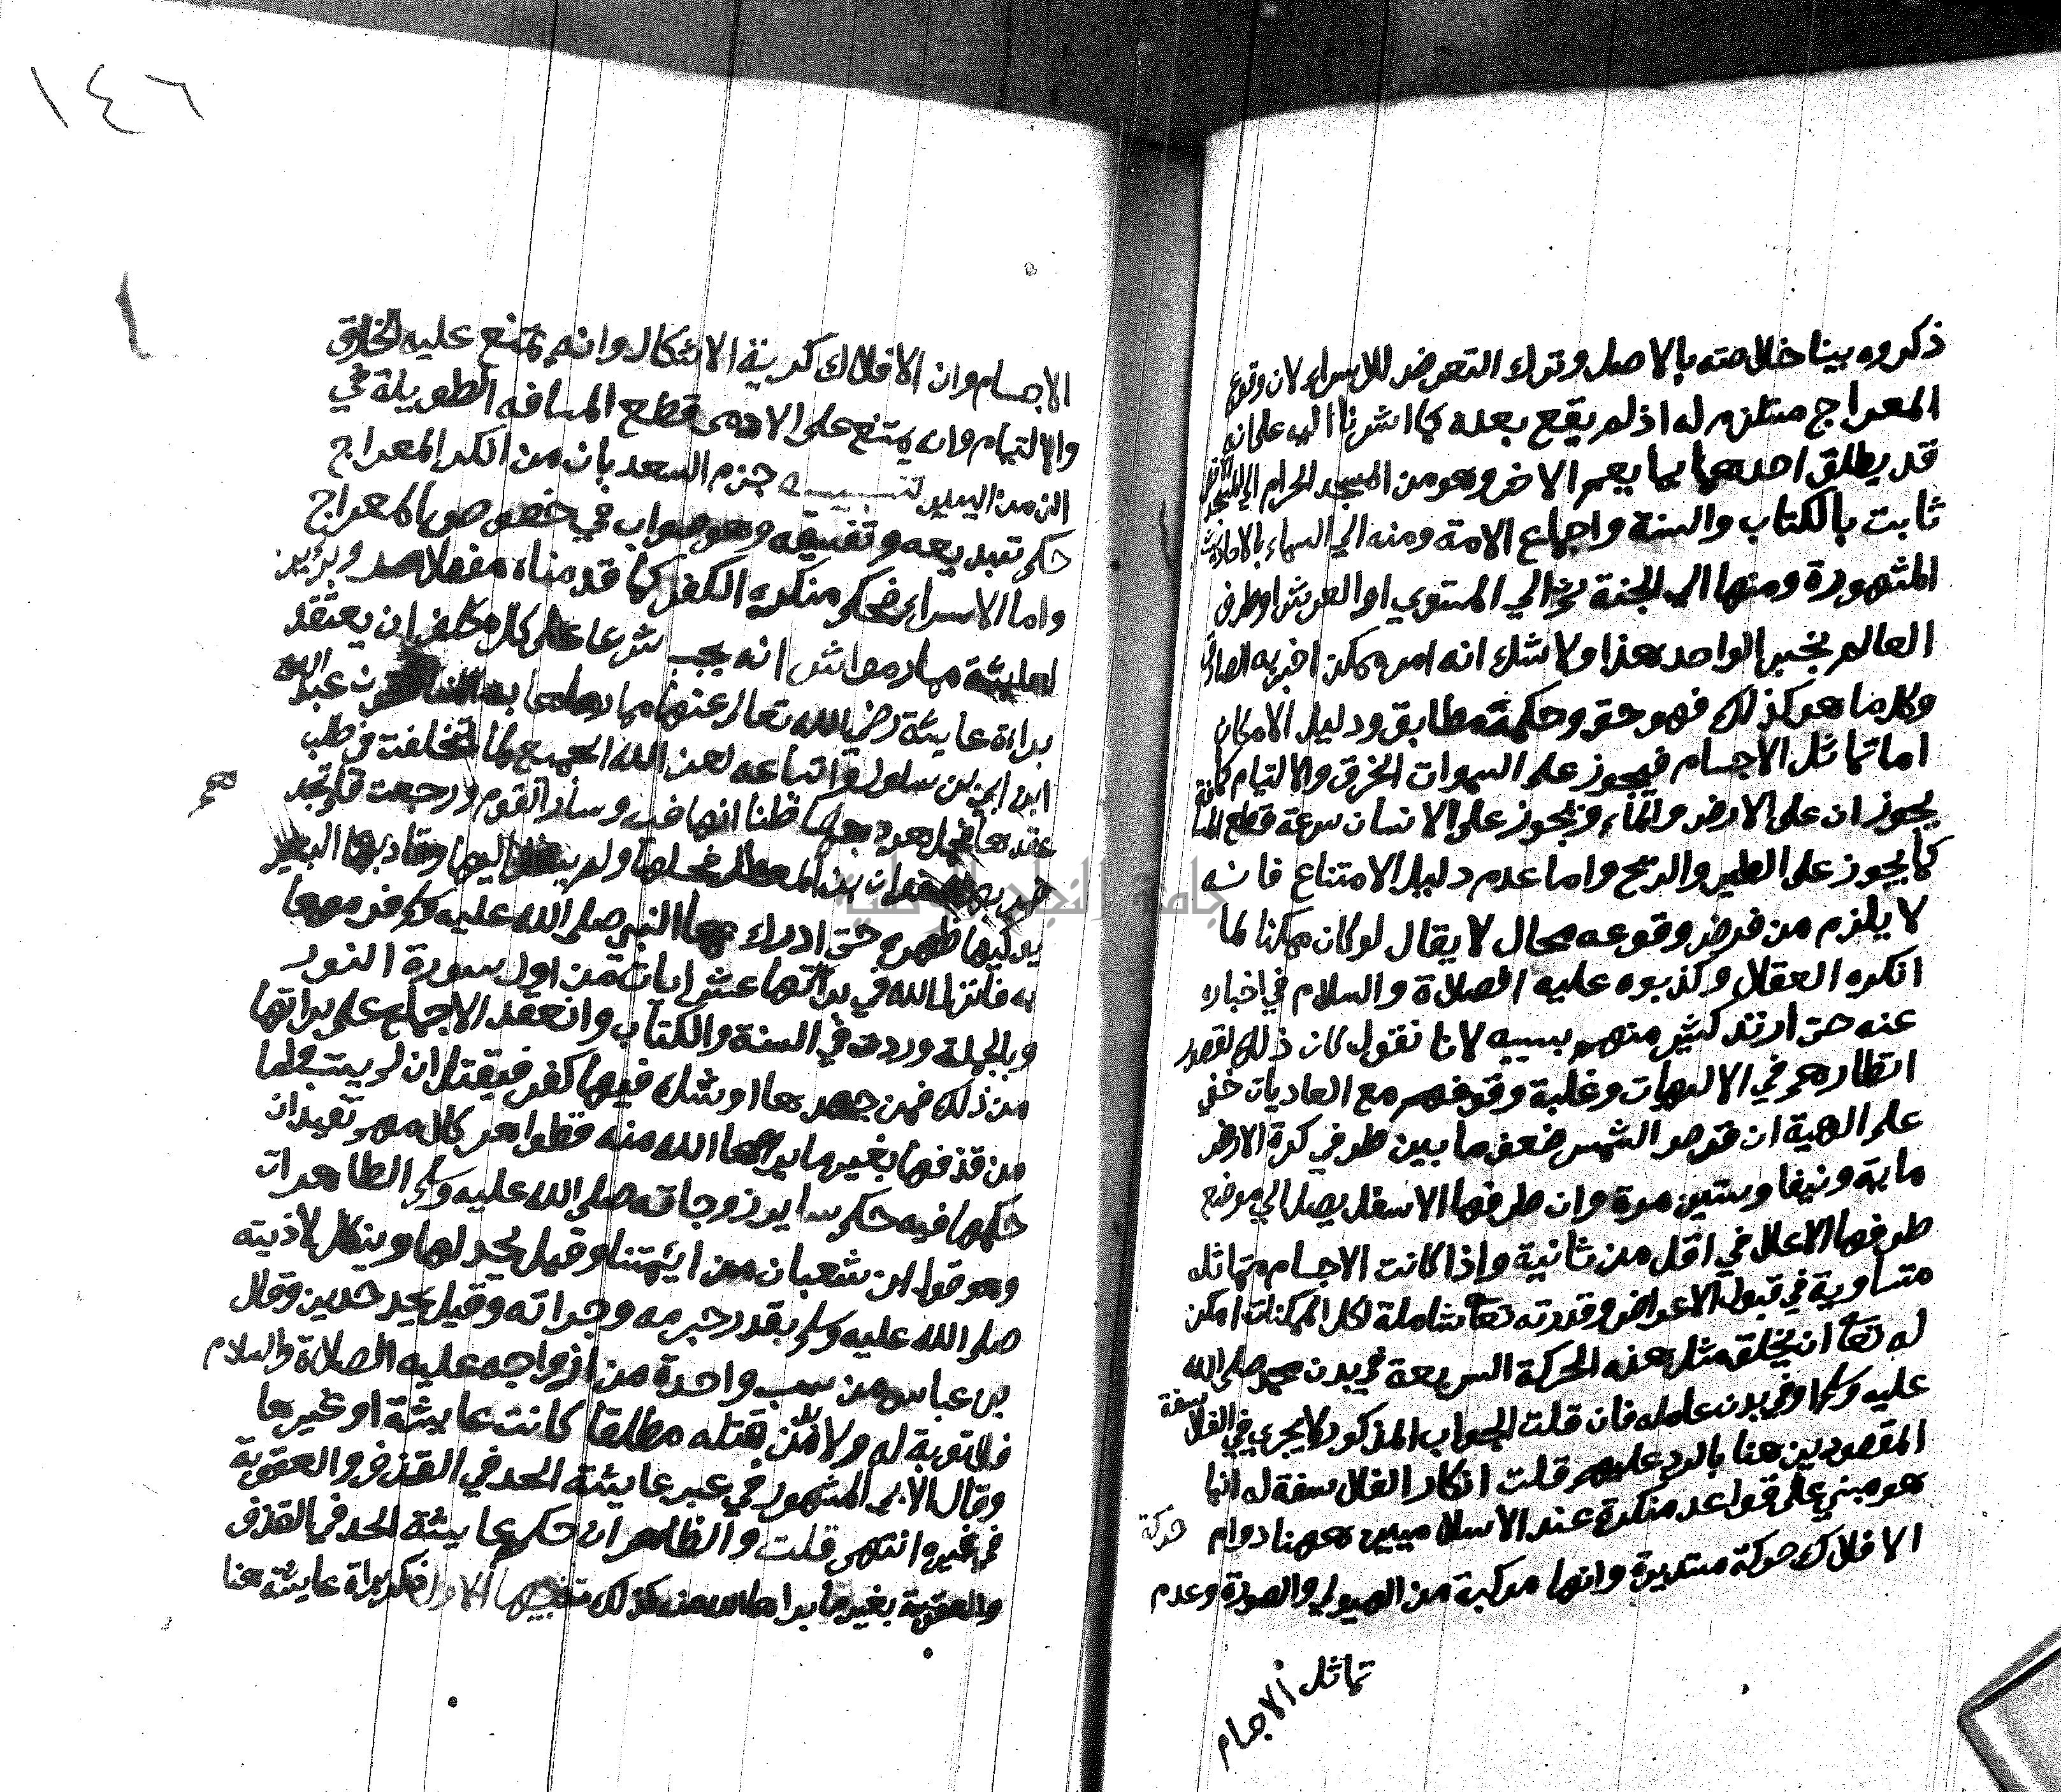 ذكروه بينا خلاصته بالاصل وترك التعرض للاسراء لان وقوع
المعراج مستلزم له اذ لم يقع بعده كما اشرنا اليه على انه
قد يطلق احدهما بما يعم الاخر وهو من المسجد الحرام الى المسجد
ثابت بالكتاب والسنة واجماع الامة ومنه الي السماء بالاحاديث
المشهورة ومنها الى الجنة ثم الي المستوي او العرش او طرف
العالم بخبر الواحد هذا ولا شك انه امر ممكن اخبر به الصادق
وكل ما هو كذلك فهو حق وحكمه مطابق ودليل الامكان
اما تماثل الاجسام فيجوز على السموات الخرق والالتيام كما
يجوزان على الارض والماء ويجوز على الانسان سرعة قطع
كما يجوز على الطير والريح واما عدم دليل الامتناع فانه
لا يلزم من فرض وقوعه محال لا يقال لو كان ممكنا لما
انكره العقلا وكذبوه عليه الصلاة والسلام في اخباره
عنه حتى ارتد كثير منهم بسببه لانا نقول كان ذلك لقصور
انظارهم في الالهيات وغلبة وقوفهم مع العاديات ففي
علم الهية ان قرص الشمس ضعف ما بين طرفي كرة الارض
ماية ونيفا وستين مرة وان طرفها الاسفل يصل الي موضع
طرفها الاعلا في اقل من ثانية واذا كانت الاجسام متماثلة
متساوية في قبول الاعراض وقدرته تعا شاملة لكل الممكنات امكن
له تعا ان يخلق مثل هذه الحركة السريعة في بدن محمد صلى الله
عليه وسلم او في بدن حامله فان قلت الجواب المذكور لا يجري في الفلاسفة
المقصودين هنا بالرد عليهم قلت انكار الفلاسفة له انما
هو مبني على قواعد منكرة عند الاسلاميين ههنا دوام حركة
الافلاك حركة مستديرة وانها مركبة من الهيولي والصورة وعدم
تماثل الاجسام
١٤٦
الاجسام وان الافلاك كرية الاشكال وانه يمتنع عليه الخرق
والالتيام وانه يمتنع على الادمى قطع المسافه الطويلة في
الزمن اليسير تنبيه جزم السعد بان من انكر المعراج
حكم تبديعه وتفسيقه وهو صواب في خصوص المعراج
واما الاسراء فحكم منكره الكفر كما قدمناه مفصلا
انه يجب شرعا على كل مكلف ان يعتقد
براءة عايشة رضي الله تعالى عنها مما رماها به عبد الله
ابن ابي بن سلول واتباعه لعن الله الجميع لما تخلفت في طلب
عقدها ظنا انها فيه وسار القوم ورجعت فلم تجد
بن المعطل ولم ينظر اليها وقاد بها البعير
حتى ادرك بها النبي صلى الله عليه وسلم
فانزل الله في براتها عشر ايات من اول سورة النور
وبالجملة وردت في السنة والكتاب وانعقد الاجماع على براتها
من ذلك فمن جحدها او شك فيها كفر فيقتل ان لم يتب
من قذفها بغير ما براها الله منه
حكمها فيه حكم ساير زوجاته صلى الله عليه وسلم الطاهرات
وهو قول ابن شعبان من ايمتنا وقيل يحد لها وينكل لاذيته
صلى الله عليه وسلم بقدر جرمه وجراته وقيل يحد حدين وقال
بن عباس من سب واحدة من ازواجه عليه الصلاة والسلام
فلا توبة له ولا بد من قتله مطلقا كانت عايشة او غيرها
وقال الابي المشهور في غير عايشة الحد في القذف والعقوبة
في غيره انتهى قلت والظاهر ان حكم عايشة الحد في القذف
والعقوبة بغير ما براها الله منه كذلك الاول ذكر براة عايشة هنا